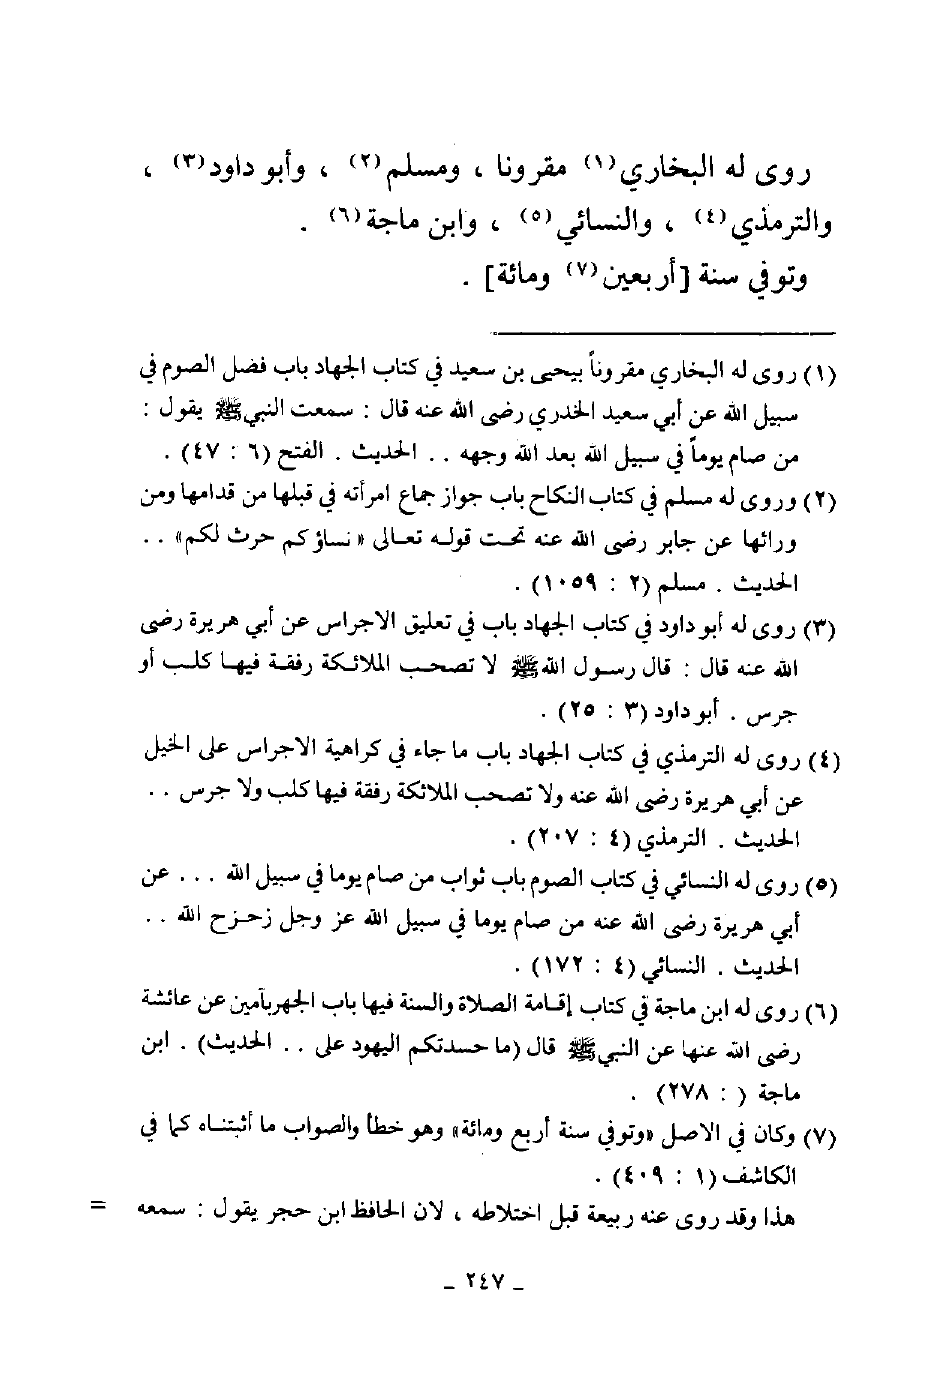 روى له البخاري(١) مقرونا ، ومسلم(٢) ، وأبو داود(٣) ،
والترمذي(٤) ، والنسائي(٥) ، وابن ماجة(٦) .
وتوفي سنة [أربعين(٧) ومائة] .
(١) روى له البخاري مقروناً بيحيى بن سعيد في كتاب الجهاد باب فضل الصوم في
سبيل الله عن أبي سعيد الخدري رضى الله عنه قال : سمعت النبي ﷺ يقول :
من صام يوماً في سبيل الله بعد الله وجهه . . الحديث . الفتح (٦ : ٤٧) .
(٢) وروى له مسلم في كتاب النكاح باب جواز جماع امرأته في قبلها من قدامها ومن
ورائها عن جابر رضى الله عنه تحت قوله تعالى «نساؤكم حرث لكم» . .
الحديث . مسلم (٢ : ١٠٥٩) .
(٣) روى له أبو داود في كتاب الجهاد باب في تعليق الاجراس عن أبي هريرة رضى
الله عنه قال : قال رسول الله ﷺ لا تصحب الملائكة رفقة فيها كلب أو
جرس . أبو داود (٣ : ٢٥) .
(٤) روى له الترمذي في كتاب الجهاد باب ما جاء في كراهية الاجراس على الخيل
عن أبي هريرة رضى الله عنه ولا تصحب الملائكة رفقة فيها كلب ولا جرس . .
الحديث . الترمذي (٤ : ٢٠٧) .
(٥) روى له النسائي في كتاب الصوم باب ثواب من صام يوما في سبيل الله . . . عن
أبي هريرة رضى الله عنه من صام يوما في سبيل الله عز وجل زحزح الله . .
الحديث . النسائي (٤ : ١٧٢) .
(٦) روى له ابن ماجة في كتاب إقامة الصلاة والسنة فيها باب الجهر بآمين عن عائشة
رضى الله عنها عن النبي ﷺ قال (ما حسدتكم اليهود على . . الحديث) . ابن
ماجة ( : ٢٧٨) .
(٧) وكان في الاصل «وتوفي سنة أربع ومائة» وهو خطأ والصواب ما أثبتناه كما في
الكاشف (١ : ٤٠٩) .
هذا وقد روى عنه ربيعة قبل اختلاطه ، لان الحافظ ابن حجر يقول : سمعه =
_ ٢٤٧ _